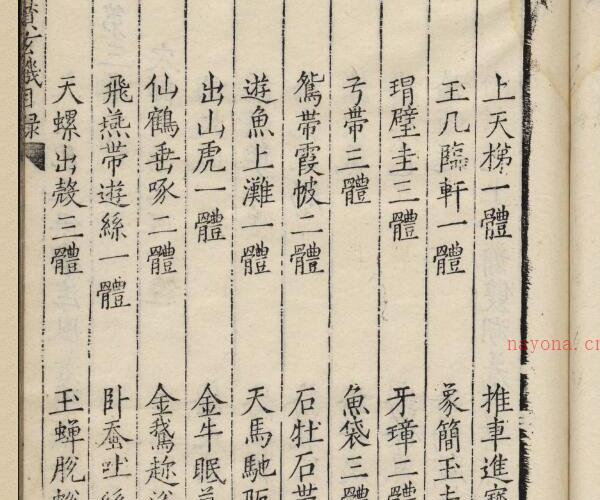 上天梯一體　推車進寶
玉几臨軒一體　象簡玉圭
瑁璧圭三體　牙璋二體
弓帶三體　魚袋三體
鴛帶霞帔二體　石牡石帶
遊魚上灘一體　天馬馳
出山虎一體　金牛眠
仙鶴垂啄二體　金鵞趂
飛燕帶遊絲一體　臥蚕吐絲
天螺出殼三體　玉蟬脫
玄機目録
nayona.cn